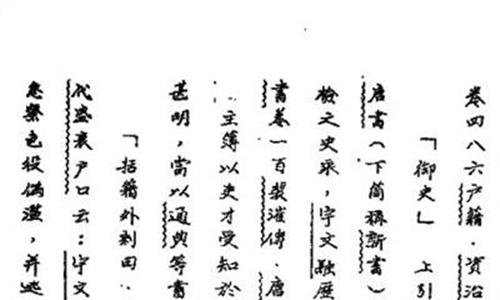 卷四八六户籍.资治
「御史」上引
唐书(下简称新书)
检之史承,宇文融歷
書卷一百裴漼傳.唐
主簿以吏才受知於
甚明,當以通典等書
「括籍外剩田.
代盛衰户口云:宇文
急緊色役偽濫,并逃